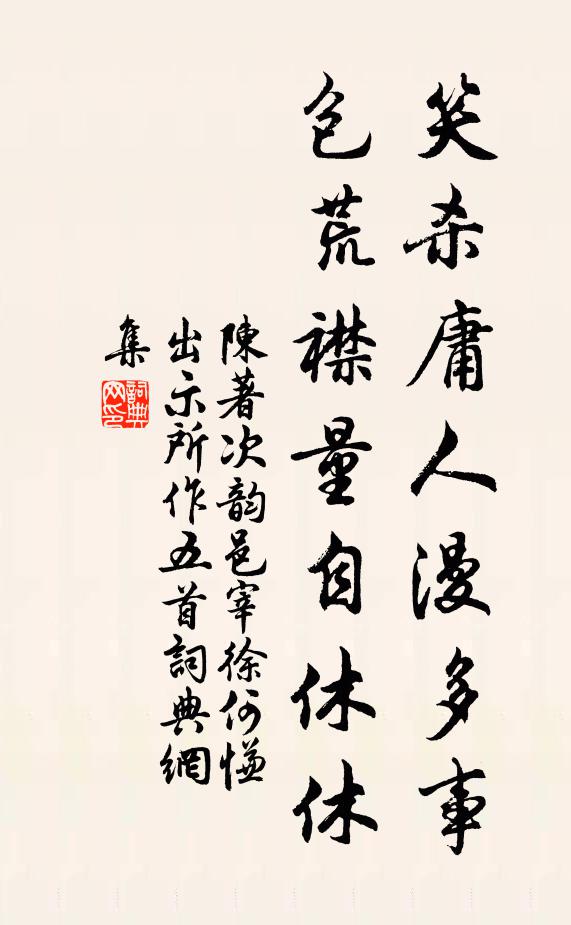 笑杀庸人漫多事
包荒襟量自休休
陳著次韵邑宰徐何慊
出示所作五首詞典網
集
詞典网印